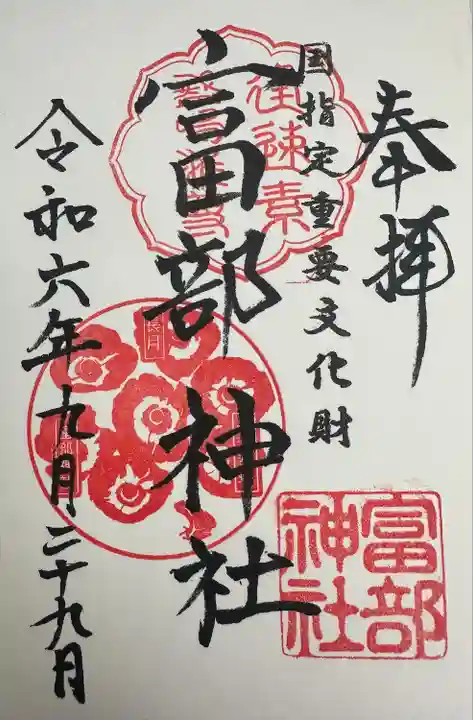 奉拝
国指定重要文化財
富部神社
令和六年九月二十九日
富部
神社
長月